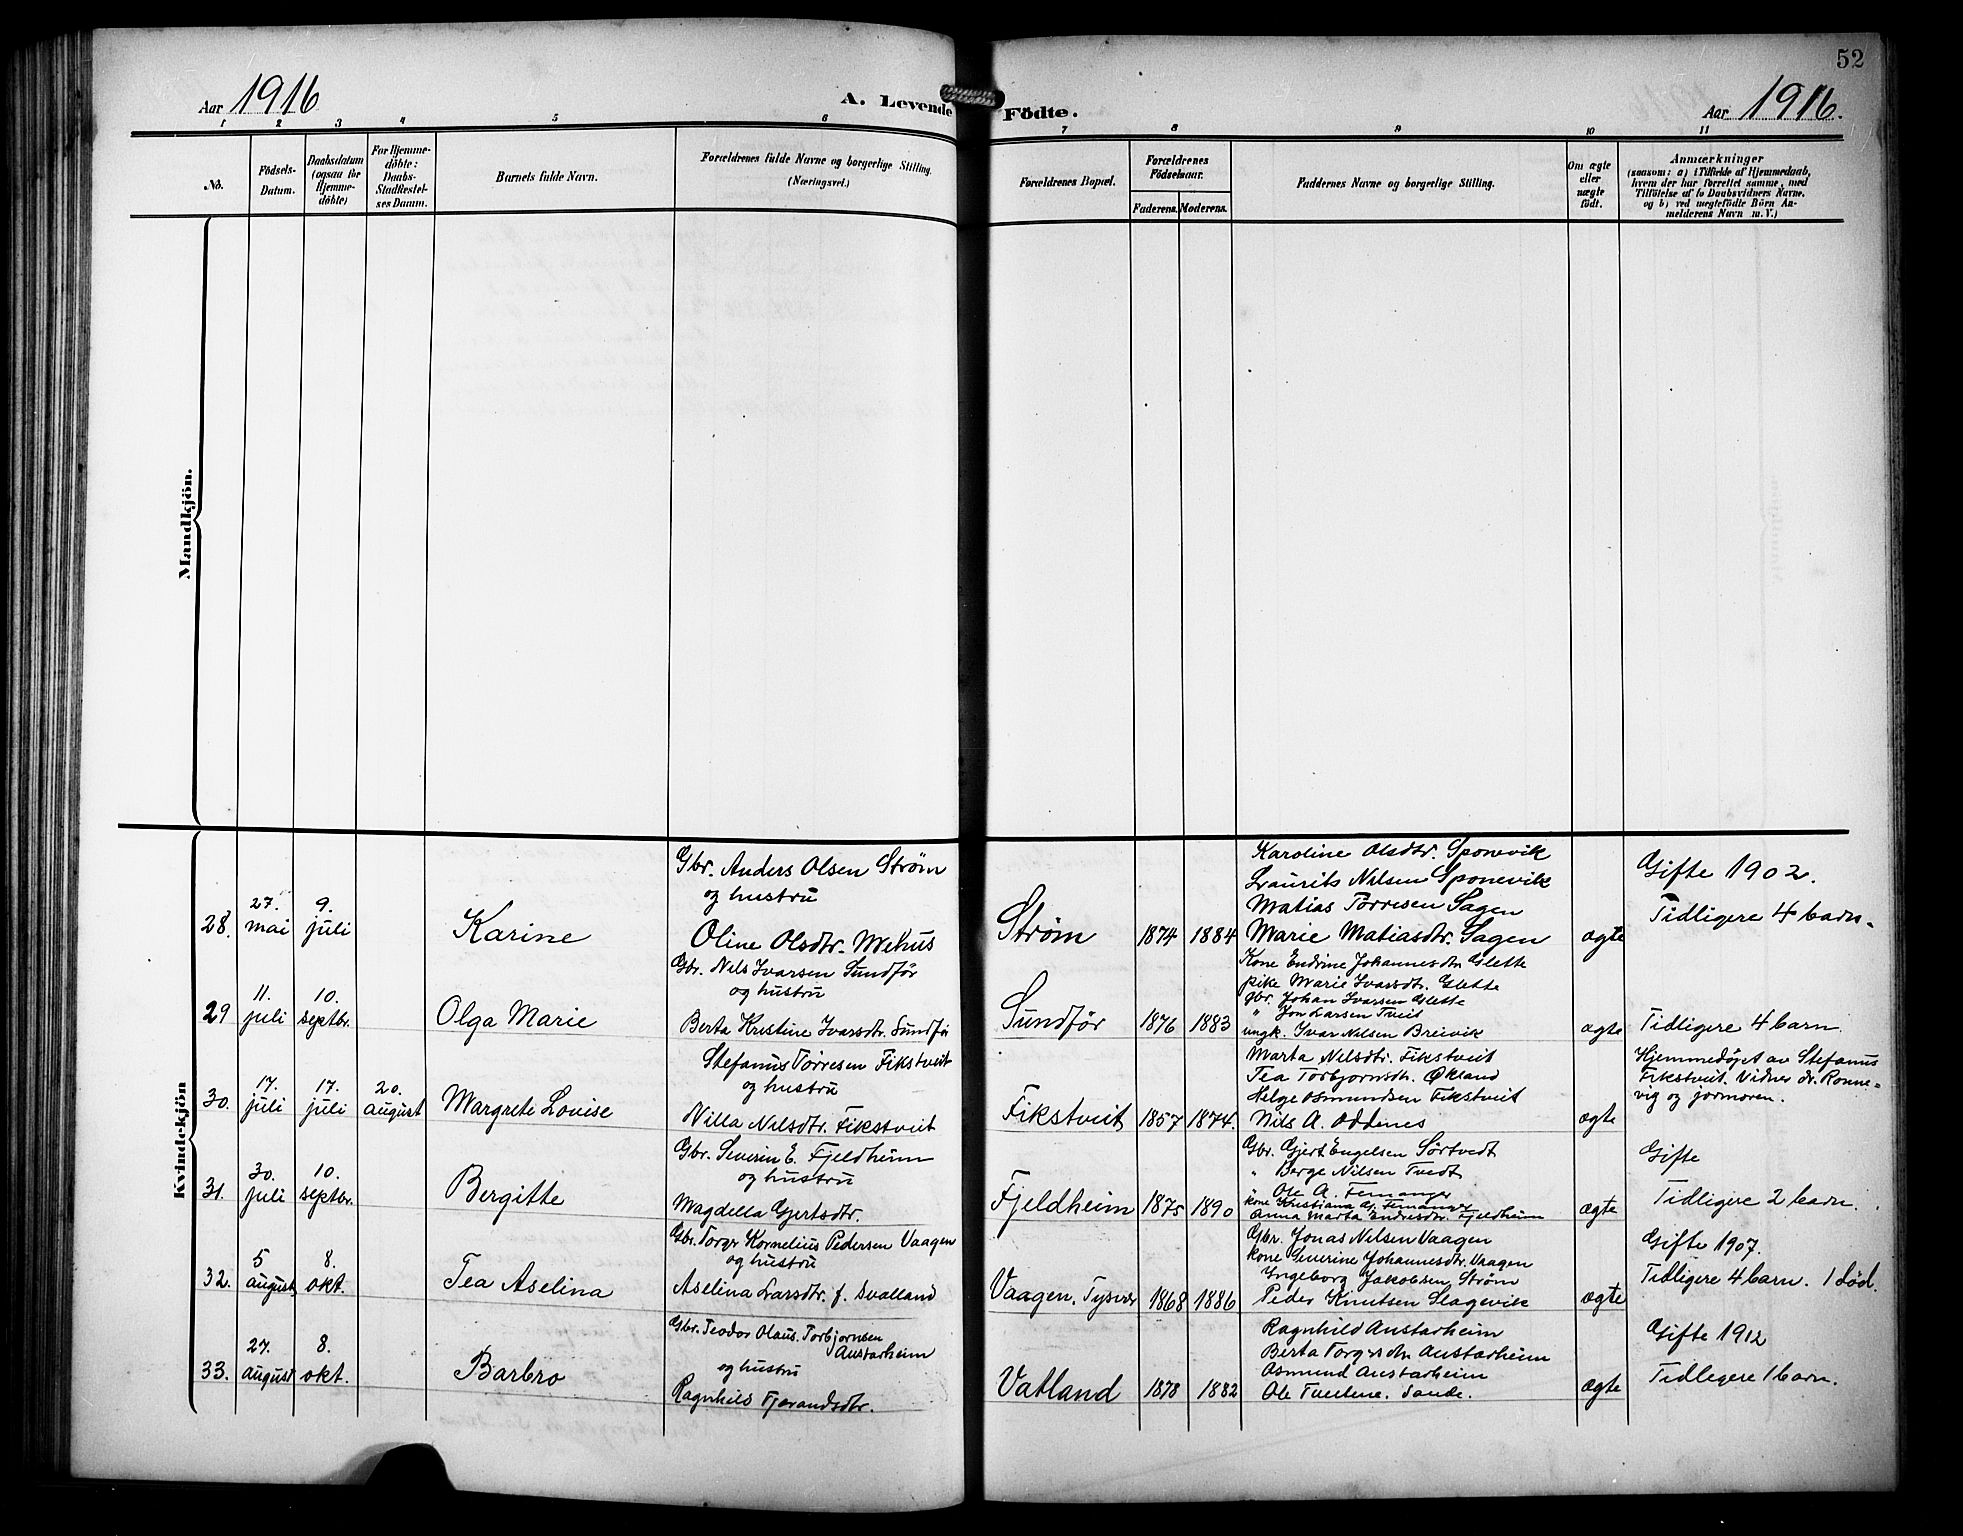 52
Aar 1916
A. Levende Födte.
Aar 1916.
1 2 3 4 5 6 7 8 9 10 11
No.
Födsels-
Datum.
Daabsdatum
(ogsaa for
Hjemme-
döbte)
For Hjemme-
döbte:
Daabs-
Stadfæstel-
ses Datum.
Barnets fulde Navn.
Forældrenes fulde Navne og borgerlige Stilling.
(Næringsvei.)
Forældrenes Bopæl.
Forældrenes
Födselsaar.
Faderens. Moderens.
Faddernes Navne og borgerlige Stilling.
Om ægte
eller
uægte
födt.
Anmærkninger
(saasom: a) i Tilfælde af Hjemmedaab,
hvem der har forrettet samme, med
Tilföielse af to Daabsvidners Navne,
og b) ved uægtefödte Börn An-
melderens Navn m. V.)
Mandkjön.
Kvindekjön
28.
27.
mai
9.
juli
Karine
Gbr. Anders Olsen Strøm
og hustru
Oline Olsdtr. Mehus
Strøm
1874
1884
Karoline Olsdtr. Sponevik
Laurits Nilsen Sponevik
Matias Torresen Sagen
Marie Matiasdtr. Sagen
ægte
Gifte 1902.
Tidligere 4 barn.
29
11.
juli
10.
septbr.
Olga Marie
Gbr. Nils Ivarsen Sundfør
og hustru
Berta Kristine Ivarsdtr. Sundfør
Sundfør
1876
1883
Kone Endrine Johannesdtr. Glette
pike Marie Ivarsdtr. Glette
gbr. Johan Ivarsen Glette
" Jon Larsen Tveit
ungk. Ivar Nilsen Breivik
ægte
Tidligere 4 barn.
30.
17.
juli
17.
juli
20.
august
Margrete Lovise
Stefanus Tørresen Fikstveit
og hustru
Villa Nilsdtr. Fikstveit
Fikstveit
1857
1874.
Marta Nilsdtr. Fikstveit
Tea Torbjornsdtr. Økland
Helge Osmundsen Fikstveit
Nils A. Oddenes
ægte
Hjemmedøpt av Stefanus
Fikstveit. Vidner dr. Ronne-
vig og jormoren.
31.
30.
juli
10.
septbr.
Bergitte
Gbr. Severin E. Fjeldheim
og hustru
Magdella Gjertsdtr.
Fjeldheim
1875
1890
Gbr. Gjert Engelsen Sørtvedt
" Berge Nilsen Tvedt
" Ole A. Femanger
kone Kristiana G. Femanger
Anna Marta Endresdtr. Fjeldheim
ægte
Gifte
Tidligere 2 barn.
32.
5
august
8.
okt.
Tea Aselina
Gbr. Torgr Kornelius Pedersen Vaagen
og hustru
Aselina Larsdtr. f. Svalland
Vaagen, Tysvær
1868
1886
Gbr. Jonas Nilsen Vaagen
kone Severine Johannesdtr. Vaagen
Yngeborg Jakobsen Strøm
Peder Knutsen Slagevik
ægte
Gifte 1907.
Tidligere 4 barn. 1 død.
33.
27.
august
8.
okt.
Barbro
Gbr. Teodor Olaus. Torbjornsen
Austarheim
og hustru
Ragnhild Fjerandsdtr.
Vatland
1878
1882
Ragnhild Austarheim
Berta Torgersdtr Austarheim
Osmund Austarheim
Ole Sande.
ægte
Gifte 1912
Tidligere 1 barn.